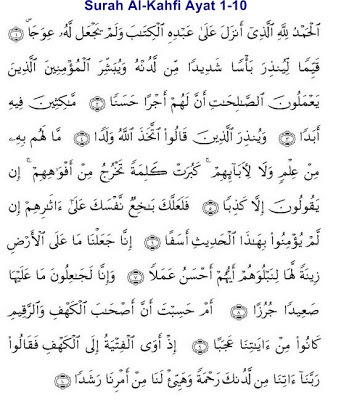 Surah Al-Kahfi Ayat 1-10
ٱلْحَمْدُ لِلَّهِ ٱلَّذِىٓ أَنزَلَ عَلَىٰ عَبْدِهِ ٱلْكِتَـٰبَ وَلَمْ يَجْعَل لَّهُۥ عِوَجَاۜ ۝١
قَيِّمًا لِّيُنذِرَ بَأْسًا شَدِيدًا مِّن لَّدُنْهُ وَيُبَشِّرَ ٱلْمُؤْمِنِينَ ٱلَّذِينَ
يَعْمَلُونَ ٱلصَّـٰلِحَـٰتِ أَنَّ لَهُمْ أَجْرًا حَسَنًا ۝٢ مَّـٰكِثِينَ فِيهِ
أَبَدًا ۝٣ وَيُنذِرَ ٱلَّذِينَ قَالُوا۟ ٱتَّخَذَ ٱللَّهُ وَلَدًا ۝٤ مَّا لَهُم بِهِۦ
مِنْ عِلْمٍ وَلَا لِـَٔابَآئِهِمْ ۚ كَبُرَتْ كَلِمَةً تَخْرُجُ مِنْ أَفْوَٰهِهِمْ ۚ إِن
يَقُولُونَ إِلَّا كَذِبًا ۝٥ فَلَعَلَّكَ بَـٰخِعٌ نَّفْسَكَ عَلَىٰٓ ءَاثَـٰرِهِمْ إِن
لَّمْ يُؤْمِنُوا۟ بِهَـٰذَا ٱلْحَدِيثِ أَسَفًا ۝٦ إِنَّا جَعَلْنَا مَا عَلَى ٱلْأَرْضِ
زِينَةً لَّهَا لِنَبْلُوَهُمْ أَيُّهُمْ أَحْسَنُ عَمَلًا ۝٧ وَإِنَّا لَجَـٰعِلُونَ مَا عَلَيْهَا
صَعِيدًا جُرُزًا ۝٨ أَمْ حَسِبْتَ أَنَّ أَصْحَـٰبَ ٱلْكَهْفِ وَٱلرَّقِيمِ
كَانُوا۟ مِنْ ءَايَـٰتِنَا عَجَبًا ۝٩ إِذْ أَوَى ٱلْفِتْيَةُ إِلَى ٱلْكَهْفِ فَقَالُوا۟
رَبَّنَآ ءَاتِنَا مِن لَّدُنكَ رَحْمَةً وَهَيِّئْ لَنَا مِنْ أَمْرِنَا رَشَدًا ۝١٠